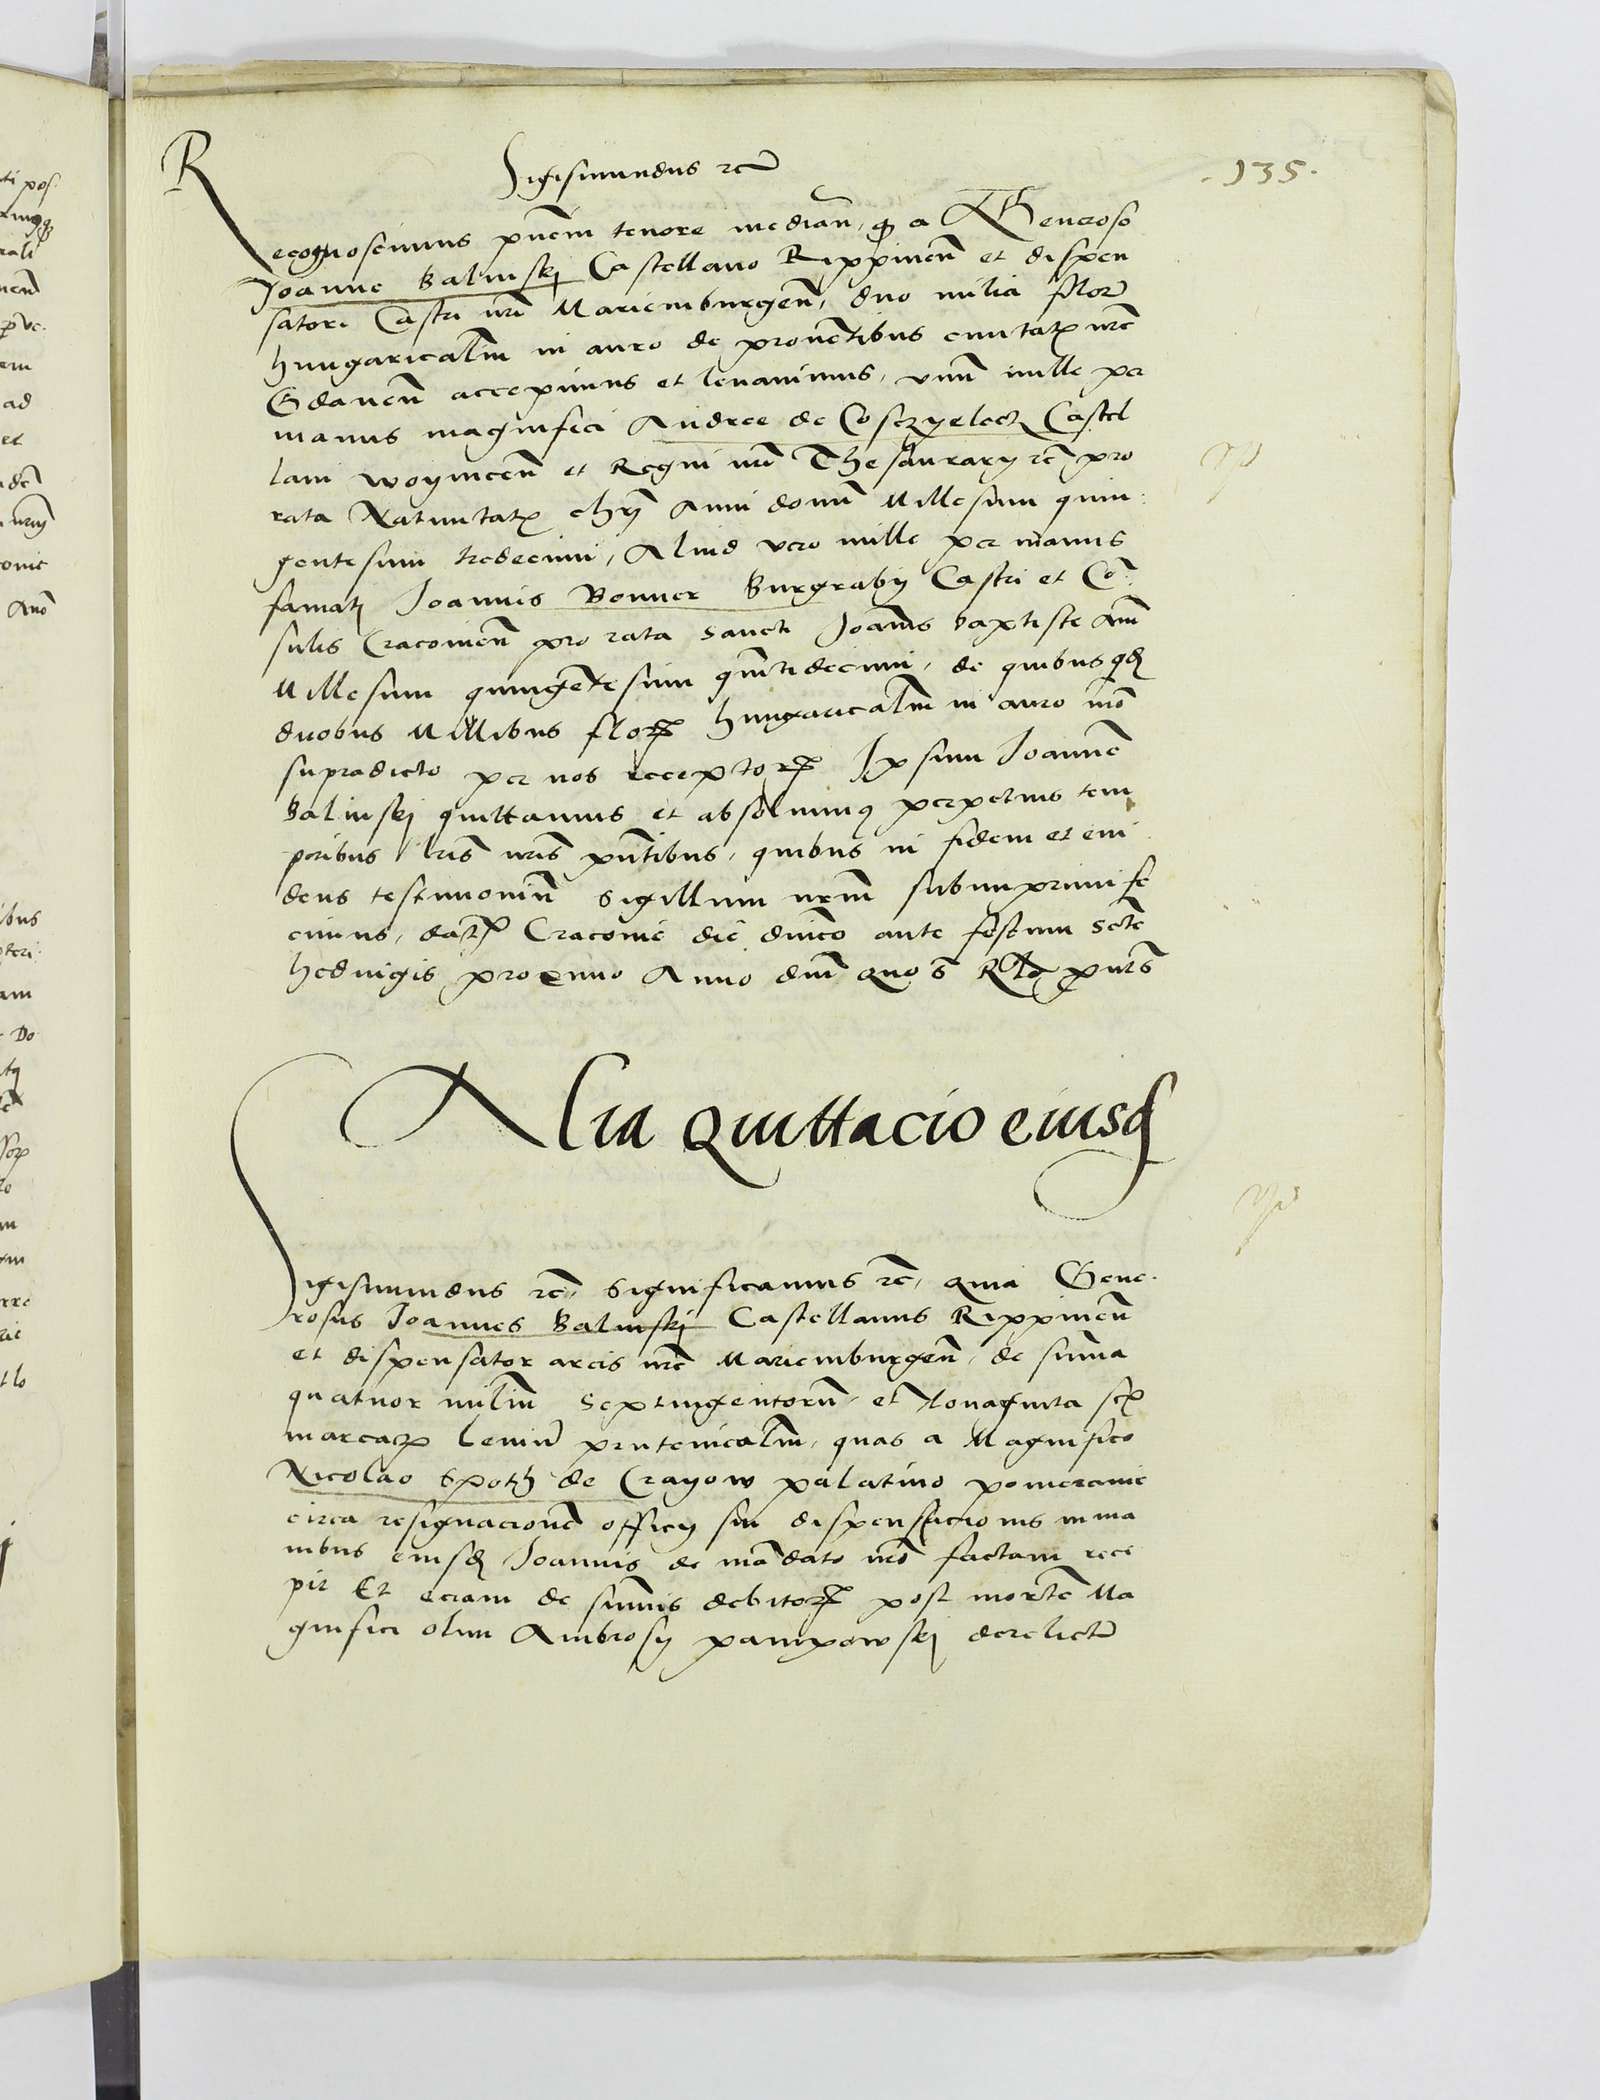 .135.
Sigismundus rc̃
Recognoscimus pñcm̃ tenore mediañ, q̃ a Generoso
Joanne Balinskj Castellano Rippineñ et dispen
satori Castri nrĩ Mariemburgeñ, duo milia flor̃
hungaricaliũ in auro de proventibus civitatis nrẽ
Gdaneñ accepimus et levavimus, vnũ mille per
manus magnifici Andree de Cosczyelecz Castel
lani woyniceñ et Regni nrĩ Thesaurarij rc̃ pro
rata Natiuitatis chrĩ Anni domĩ Millesimi quin:
gentesimi tredecimi, Aliud vero mille per manus
famati Joannis Bonner Burgrabij Castri et Cõ:
sulis Cracovieñ pro rata sancti Joannis baptiste Añi
Millesimi quingẽtesimi quĩtidecimi, de quibusqd
duobus Millibus floꝝ hungaricaliũ in auro mõ
supradicto per nos receptoꝝ Ipsum Joannẽ
Balinskj quittamus et absoluimus perpetuis tem
poribus lrĩs nrĩs pñtibus, quibus in fidem et evi
dens testimoniũ Sigillum nrũm subimprimi fe
cimus, datꝝ Cracovie die dñico ante festum scte
hedvigis proximo Anno dnĩ quo s̃ R pñts̃
Alia quittacio eiusd
Sigismundus rc̃, significamus rc̃, quia Gene:
rosus Joannes Balinskj Castellanus Rippineñ
et dispensator arcis nrẽ Mariemburgeñ, de sum̃a
quatuor miliũ septingentorũ, et Nonaginta sex
marcaꝝ leviũ prutenicaliũ, quas a Magnifico
Nicolao Spoth de Crayow palatino pomeranie
circa resignacionẽ officij sui dispensacionis in ma
nibus eiusd Joannis de mãdato nrõ factam rece
pit Et eciam de sum̃is debitoꝝ post mortẽ Ma
gnifici olim Ambrosij pampowskj derelictũ